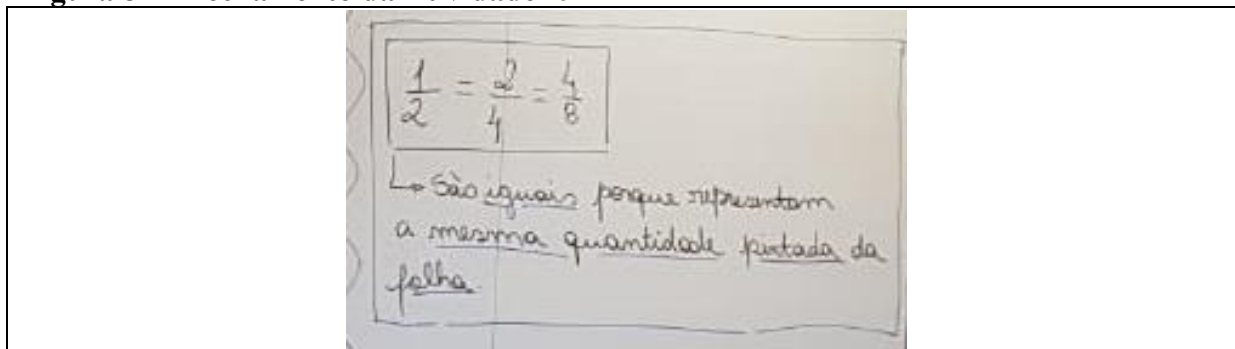 1/2 = 2/4 = 4/8
↳ São iguais porque representam
a mesma quantidade pintada da
folha.